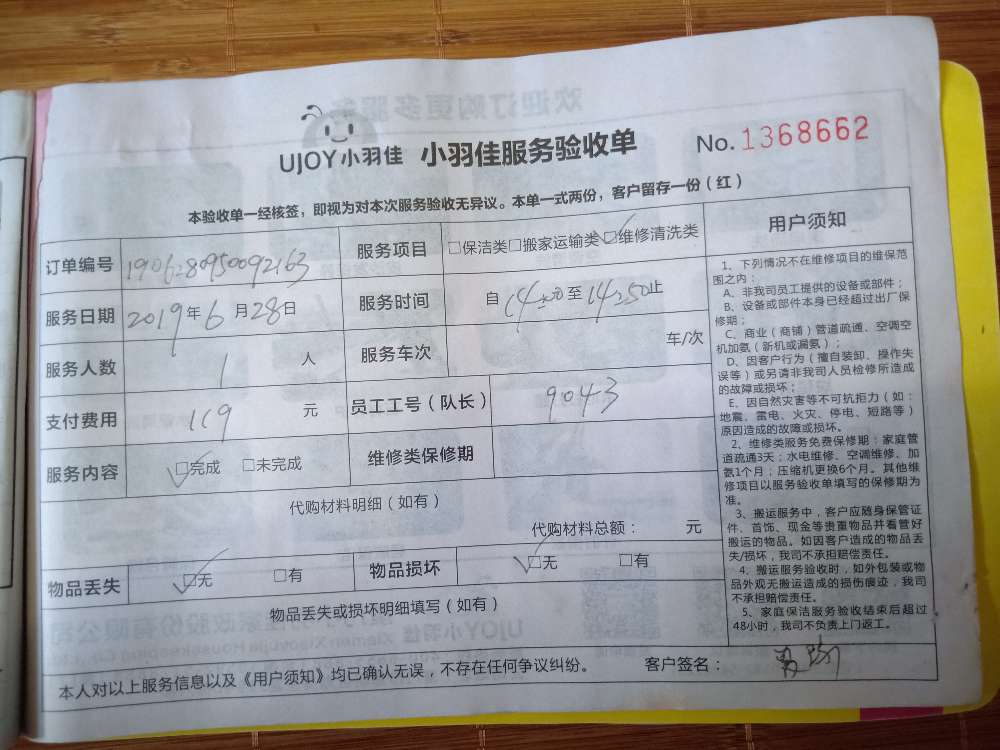 UJOY小羽佳 小羽佳服务验收单 No.1368662
本验收单一经核签，即视为对本次服务验收无异议。本单一式两份，客户留存一份（红）
订单编号 1906280950092163 服务项目 □保洁类□搬家运输类☑维修清洗类
服务日期 2019年6月28日 服务时间 自 14 至 14:50止
服务人数 1 人 服务车次 车/次
支付费用 119 元 员工工号（队长） 9043
服务内容 ☑完成 □未完成 维修类保修期
代购材料明细（如有）
代购材料总额： 元
物品丢失 ☑无 □有 物品损坏 ☑无 □有
物品丢失或损坏明细填写（如有）
用户须知
1、下列情况不在维修项目的维保范
围之内：
A、非我司员工提供的设备或部件；
B、设备或部件本身已经超过出厂保
修期；
C、商业（商铺）管道疏通、空调空
机加氨（新机或漏氨）；
D、因客户行为（擅自装卸、操作失
误等）或另请非我司人员检修所造成
的故障或损坏；
E、因自然灾害等不可抗拒力（如：
地震、雷电、火灾、停电、短路等）
原因造成的故障或损坏。
2、维修类服务免费保修期：家庭管
道疏通3天；水电维修、空调维修、加
氨1个月；压缩机更换6个月。其他维
修项目以服务验收单填写的保修期为
准。
3、搬运服务中，客户应随身保管证
件、首饰、现金等贵重物品并看管好
搬运的物品。如因客户造成的物品丢
失/损坏，我司不承担赔偿责任。
4、搬运服务验收时，如外包装或物
品外观无搬运造成的损伤痕迹，我司
不承担赔偿责任。
5、家庭保洁服务验收结束后超过
48小时，我司不负责上门返工。
本人对以上服务信息以及《用户须知》均已确认无误，不存在任何争议纠纷。 客户签名：